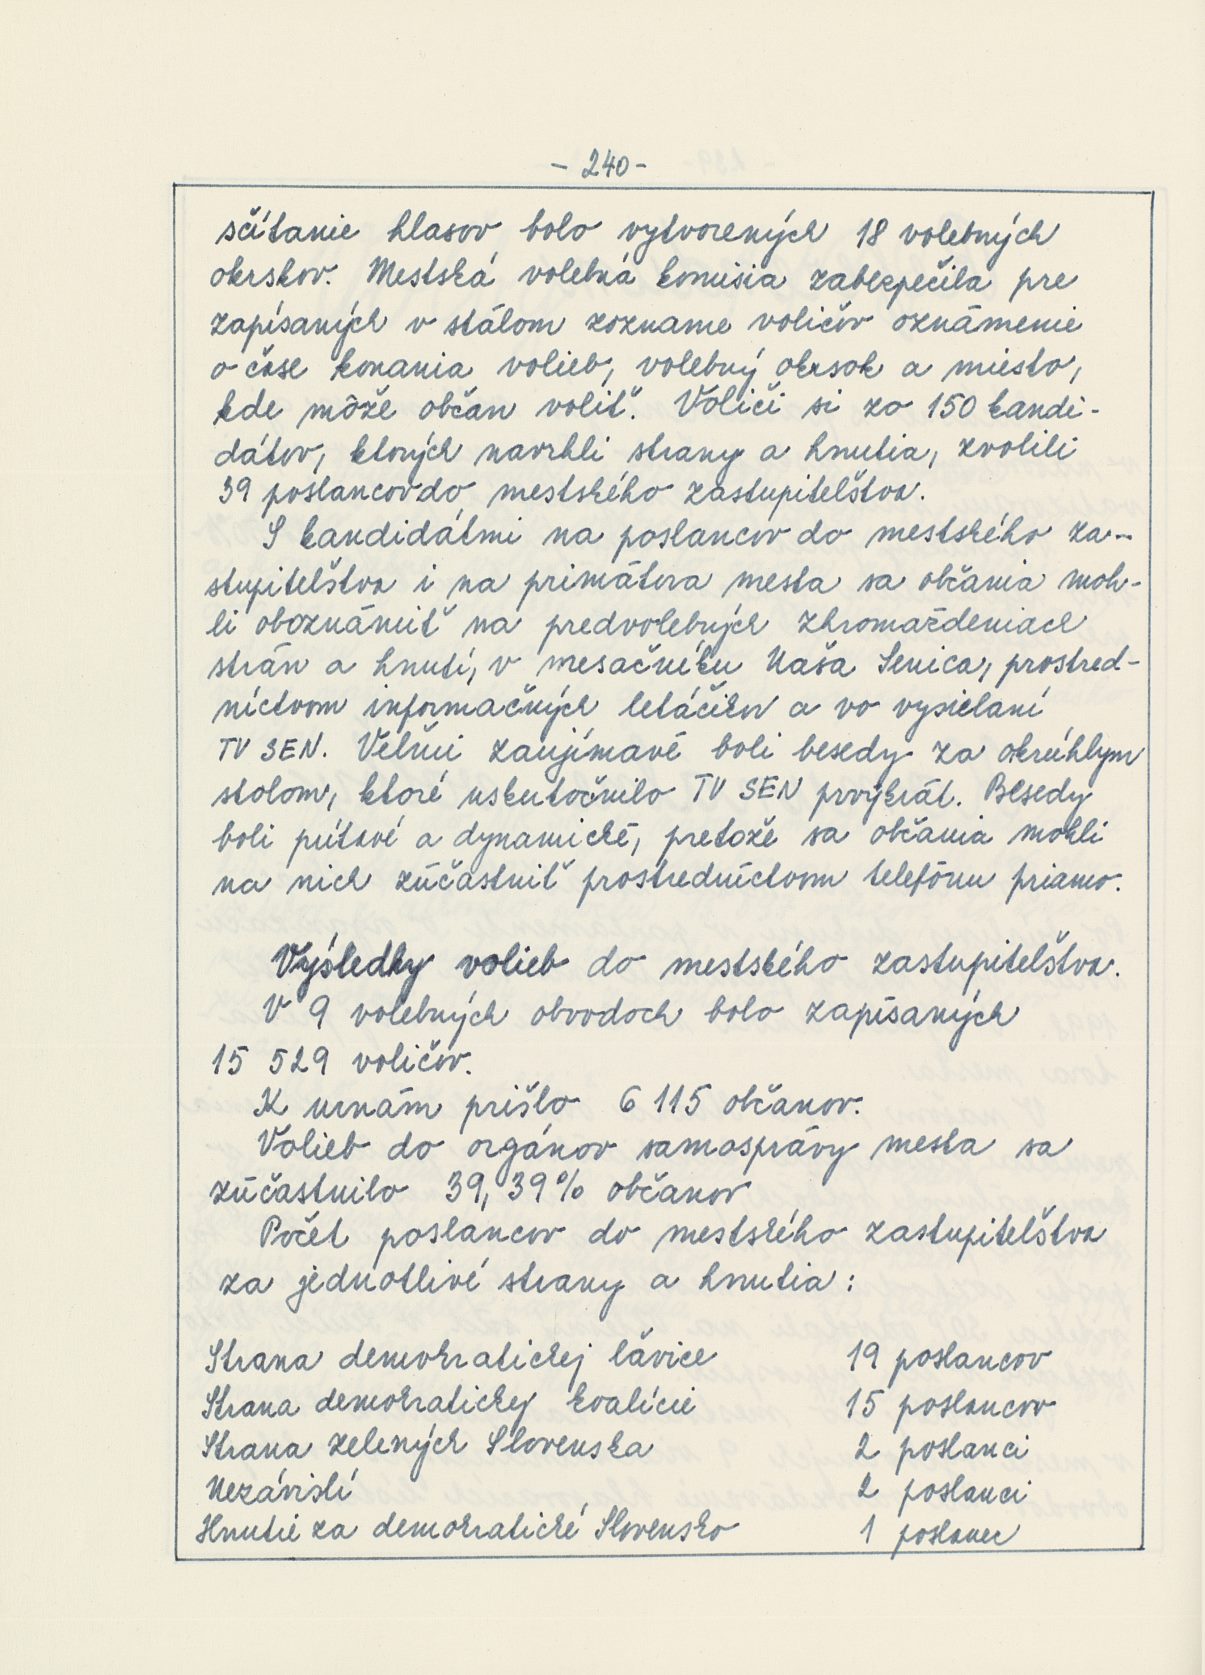 - 240 -
sčítanie hlasov bolo vytvorených 18 volebných
okrskov. Mestská volebná komisia zabezpečila pre
zapísaných v stálom zozname voličov oznámenie
o čase konania volieb, volebný okrsok a miesto,
kde môže občan voliť. Voliči si zo 150 kandi-
dátov, ktorých navrhli strany a hnutia, zvolili
39 poslancov do mestského zastupiteľstva.
S kandidátmi na poslancov do mestského za-
stupiteľstva i na primátora mesta sa občania moh-
li oboznámiť na predvolebných zhromaždeniach
strán a hnutí, v mesačníku Naša Senica, prostred-
níctvom informačných letáčikov a vo vysielaní
TV SEN. Veľmi zaujímavé boli besedy za okrúhlym
stolom, ktoré uskutočnilo TV SEN prvýkrát. Besedy
boli pútavé a dynamické, pretože sa občania mohli
na nich zúčastniť prostredníctvom telefónu priamo.
Výsledky volieb do mestského zastupiteľstva.
V 9 volebných obvodoch bolo zapísaných
15 529 voličov.
K urnám prišlo 6 115 občanov.
Volieb do orgánov samosprávy mesta sa
zúčastnilo 39,39% občanov
Počet poslancov do mestského zastupiteľstva
za jednotlivé strany a hnutia:
Strana demokratickej ľavice 19 poslancov
Strana demokratickej koalície 15 poslancov
Strana zelených Slovenska 2 poslanci
Nezávislí 2 poslanci
Hnutie za demokratické Slovensko 1 poslanec